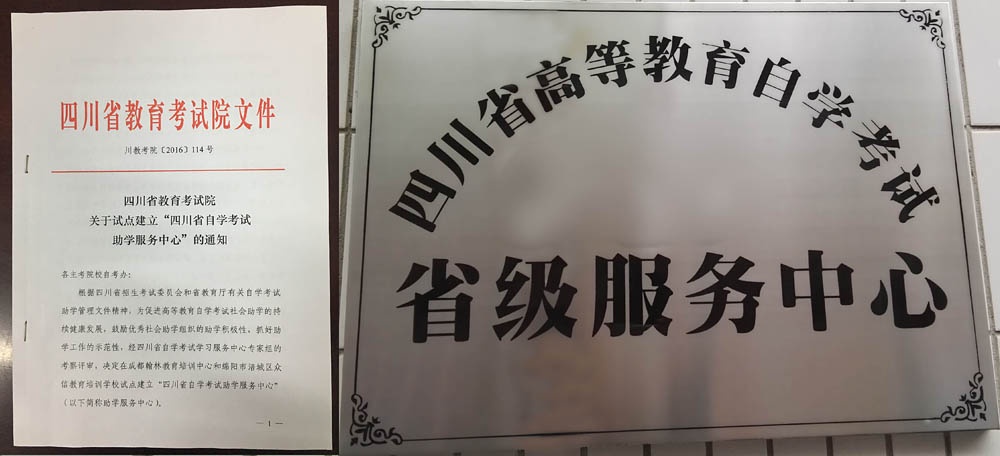 四川省教育考试院文件
川教考院〔2016〕114号
四川省教育考试院
关于试点建立“四川省自学考试
助学服务中心”的通知
各主考院校自考办：
根据四川省招生考试委员会和省教育厅有关自学考试
助学管理文件精神，为促进高等教育自学考试社会助学的持
续健康发展，鼓励优秀社会助学组织的助学积极性，抓好助
学工作的示范性，经四川省自学考试学习服务中心专家组的
考察评审，决定在成都翰林教育培训中心和绵阳市涪城区众
信教育培训学校试点建立“四川省自学考试助学服务中心”
（以下简称助学服务中心）。
— 1 —
四川省高等教育自学考试
省级服务中心